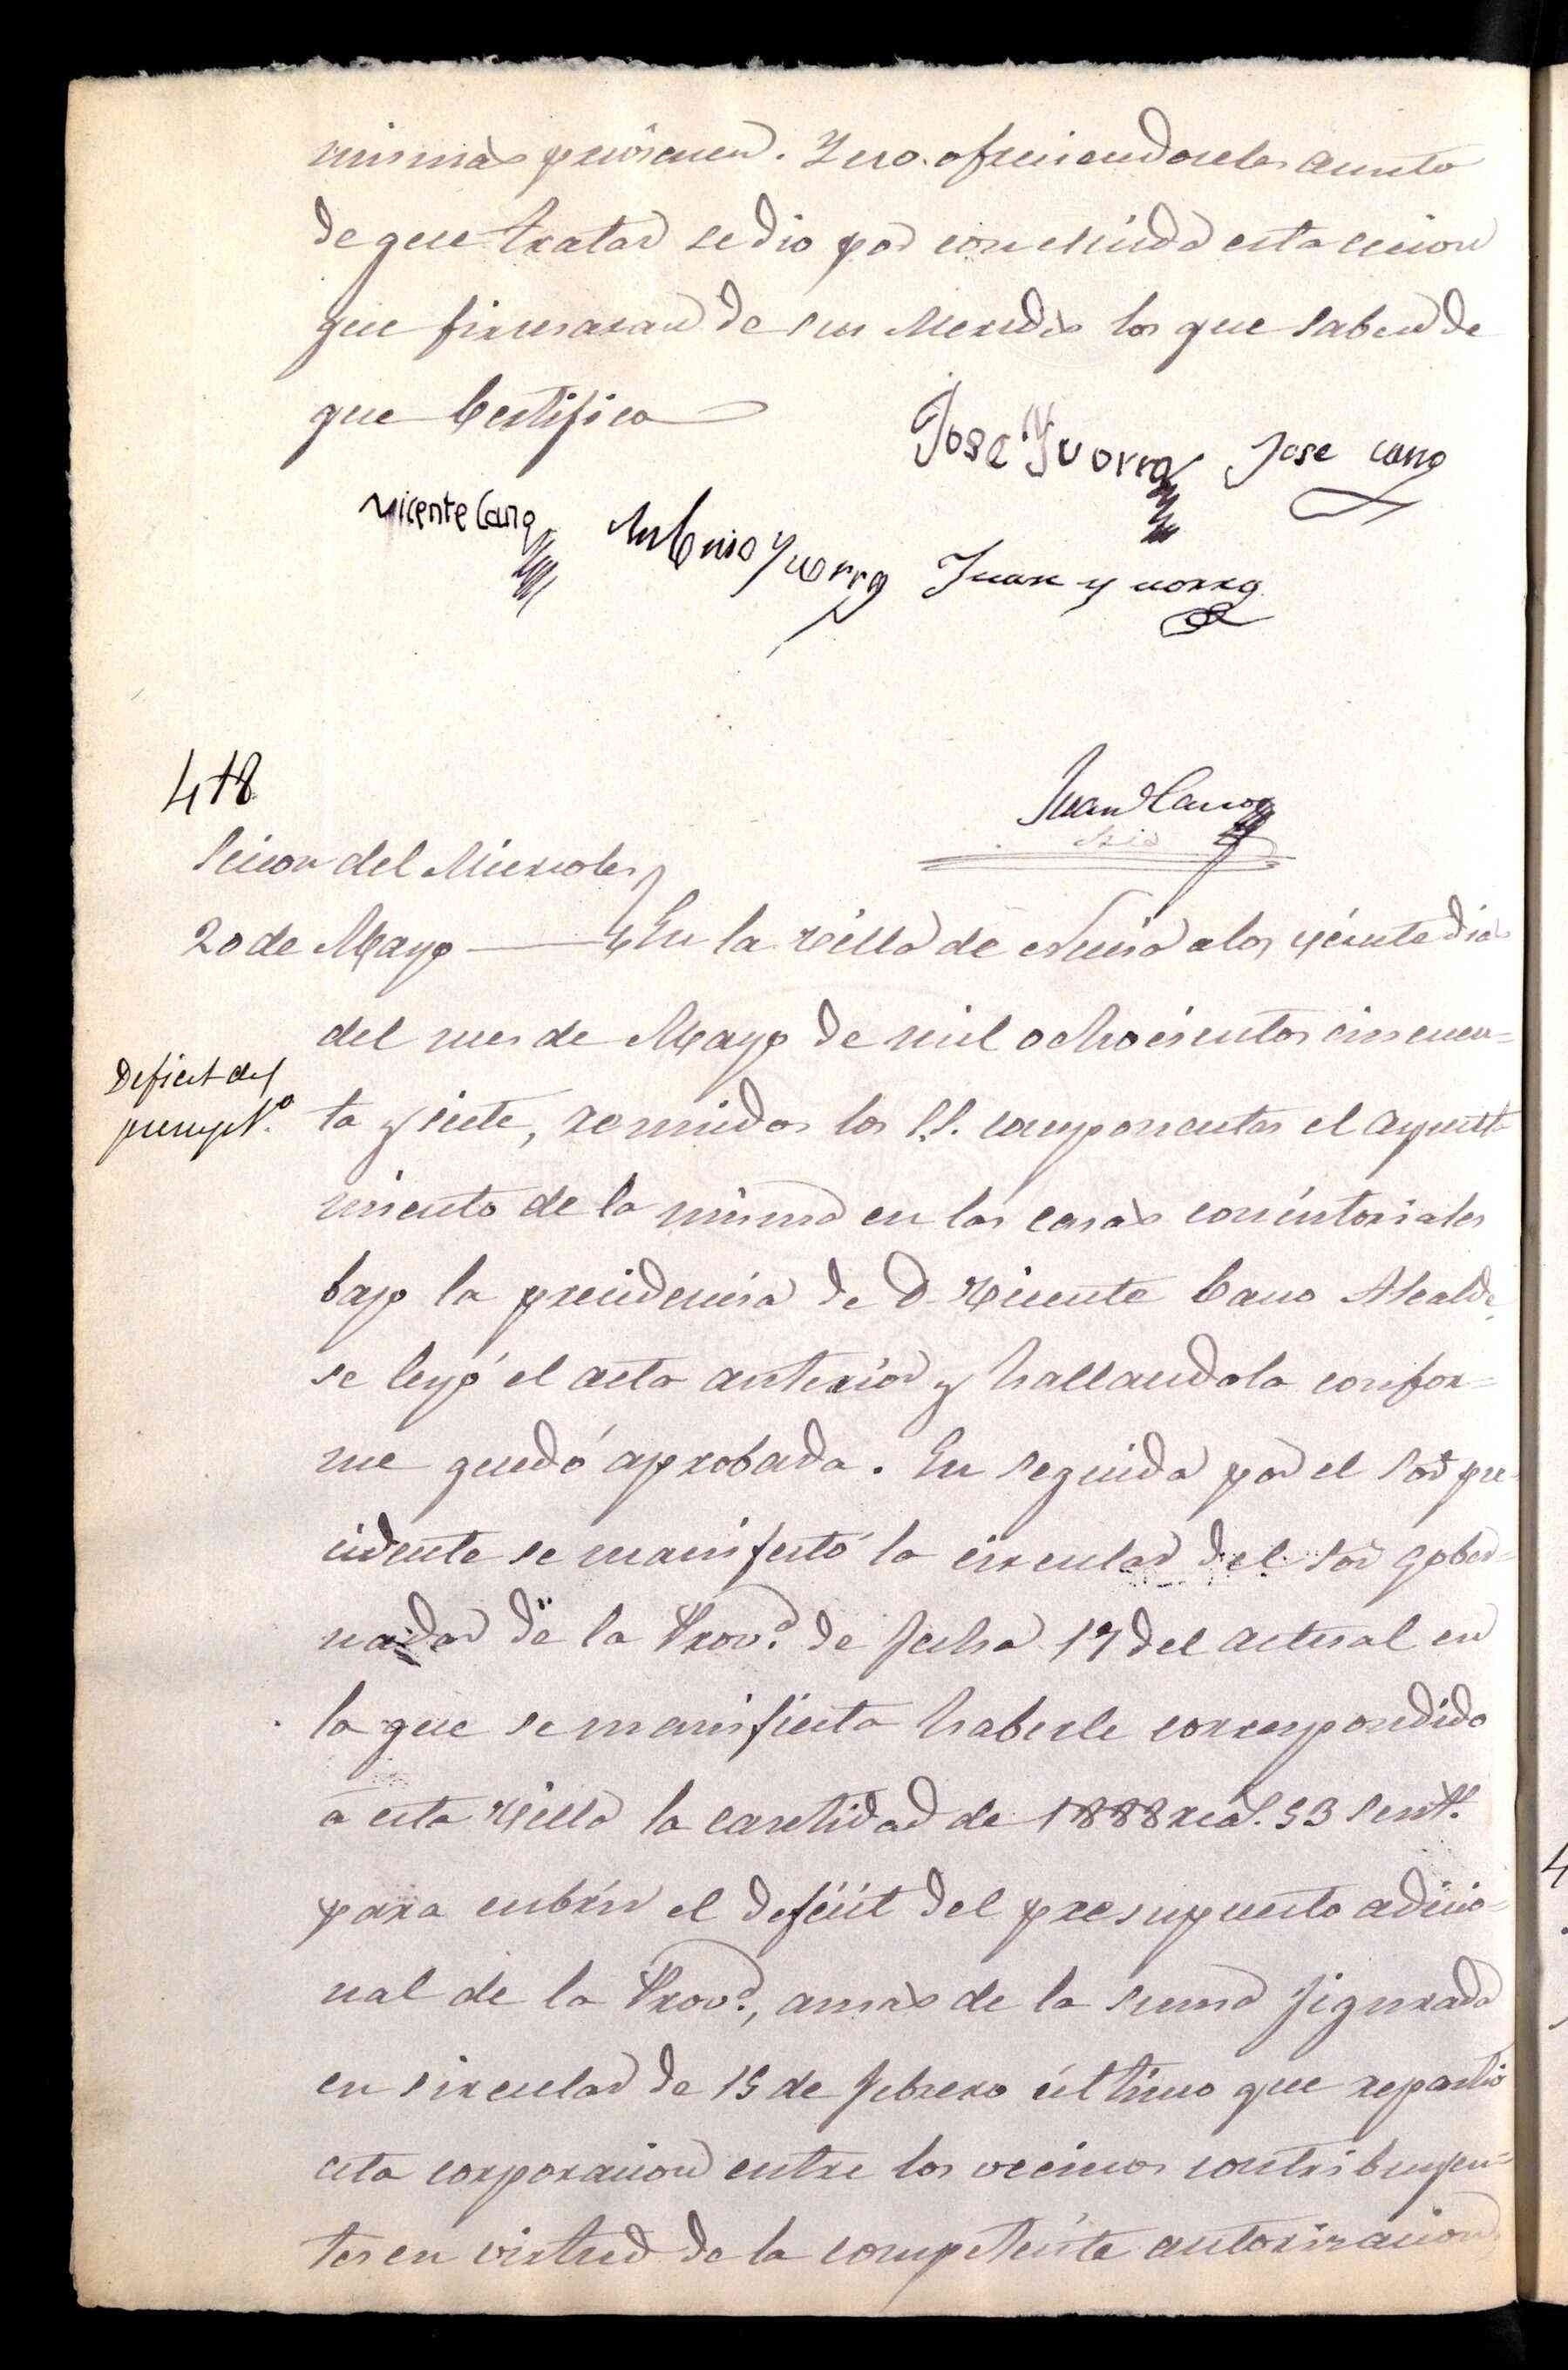 mismas prescriven. Y no ofreciendoseles asunto
de que tratar se dio por concluida esta secion
que firmaran de sus Mercedes los que saben de
que Certifico
José Yvorra Jose Cano
Vicente Cano Antonio Yvorra Juan Yvorra
Juan Cano
Srio
418
Secion del Miercoles
20 de Mayo En la villa de Nucia a los veinte dias
del mes de Mayo de mil ochocientos cincuen=
Deficit del
presupto.
ta y siete, reunidos los S.S. componentes el ayunta
miento de la misma en las casas concistoriales
bajo la precidencia de D. Vicente Cano Alcalde,
se leyó el acta anterior y hallandola confor=
me quedó aprobada. En seguida por el Sor pre-
cidente se manifestó la circular del Sor gober=
nador de la Prova. de fecha 17 del actual en
la que se manifiesta haberle correspondido
a esta villa la cantidad de 1888 rea.s 53 sent.s
para cubrir el deficit del presupuesto adicio=
nal de la Prova., amas de la suma figurada
en sircular de 15 de febrero último que repartio
esta corporacion entre los vecinos contribuyen=
tes en virtud de la competente autorizacion